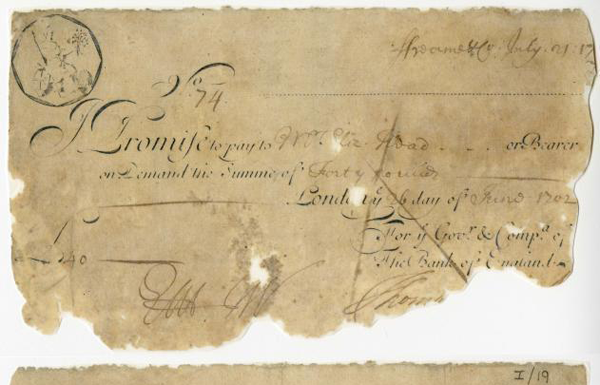 & Co. July. 21. 17
No 74.
I Promise to pay to Mr. Eliz. Head or Bearer
on Demand the Summe of Forty pounds
London ye 26 day of June 1702
For ye Govr. & Compa. of
£ 40
The Bank of England
Thomas
I/19